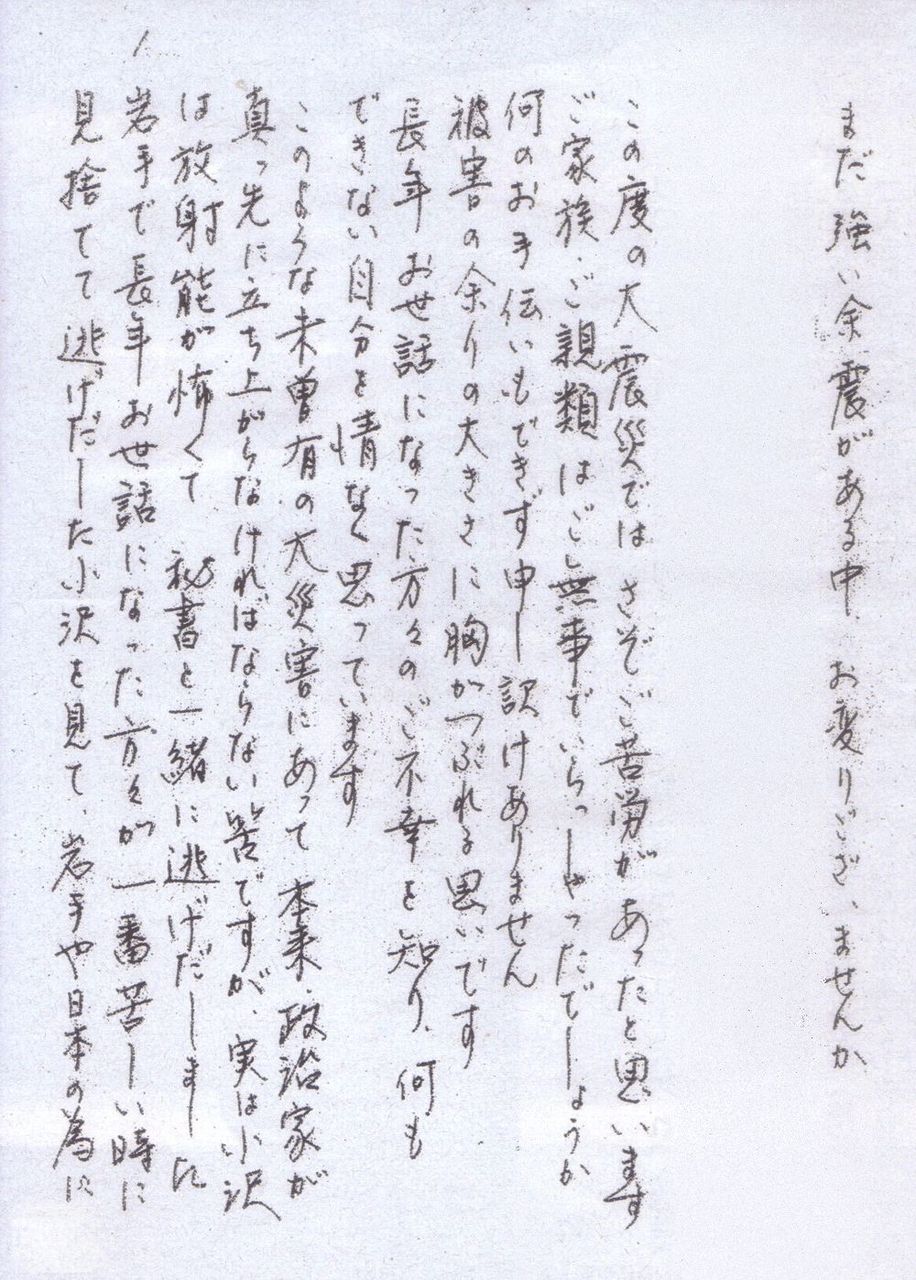 まだ強い余震がある中、お変りございませんか
この度の大震災では さぞご苦労があったと思います
ご家族・ご親類はご無事でいらっしゃったでしょうか
何のお手伝いもできず申し訳けありません
被害の余りの大きさに胸がつぶれる思いです
長年お世話になった方々のご不幸を知り、何も
できない自分を情なく思っています
このような未曽有の大災害にあって本来、政治家が
真っ先に立ち上がらなければならない筈ですが、実は小沢
は放射能が怖くて 秘書と一緒に逃げだしました
岩手で長年お世話になった方々が一番苦しい時に
見捨てて逃げだした小沢を見て、岩手や日本の為に